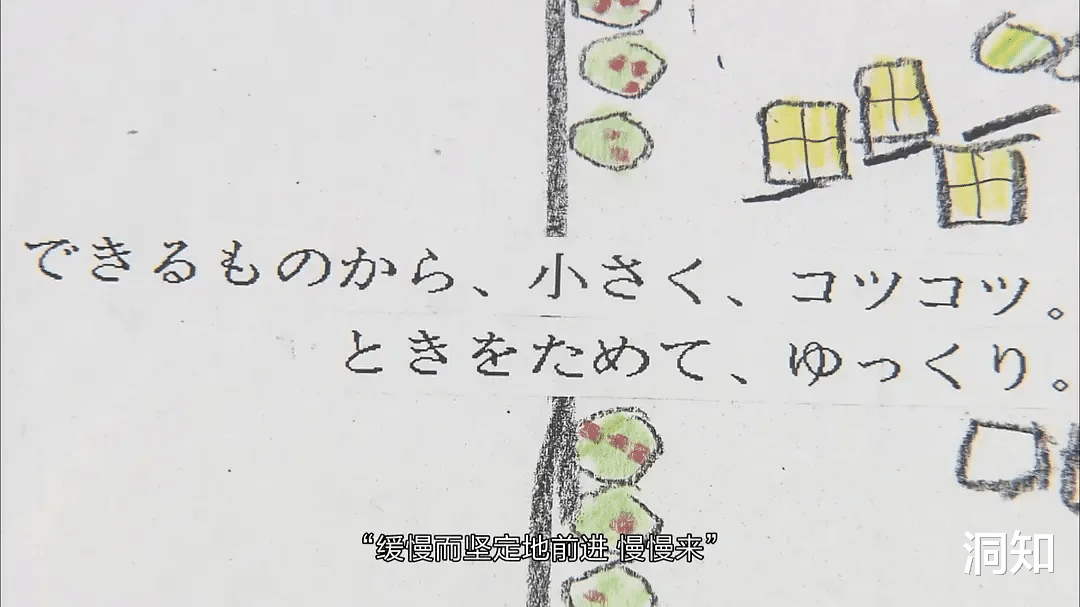 できるものから、小さく、コツコツ。
ときをためて、ゆっくり。
“缓慢而坚定地前进 慢慢来”
洞知